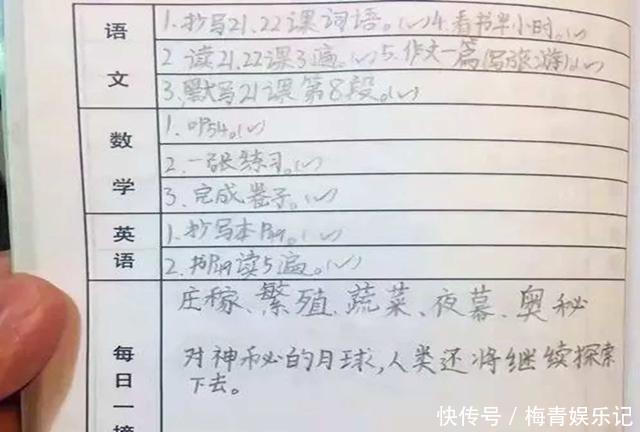 语文
1.抄写21.22课词语。(✓)4.看书半小时。(✓)
2 读21.22课3遍。(✓)5.作文一篇(写旅游)。(✓)
3.默写21课第8段。(✓)
数学
1.叶54。(✓)
2.一张练习。(✓)
3.完成卷子。(✓)
英语
1.抄写本P19。(✓)
2.书P19读5遍。(✓)
每日一
庄稼、繁殖、蔬菜、夜幕、奥秘
对神秘的月球,人类还将继续探索
下去。
快传号 / 梅青娱乐记